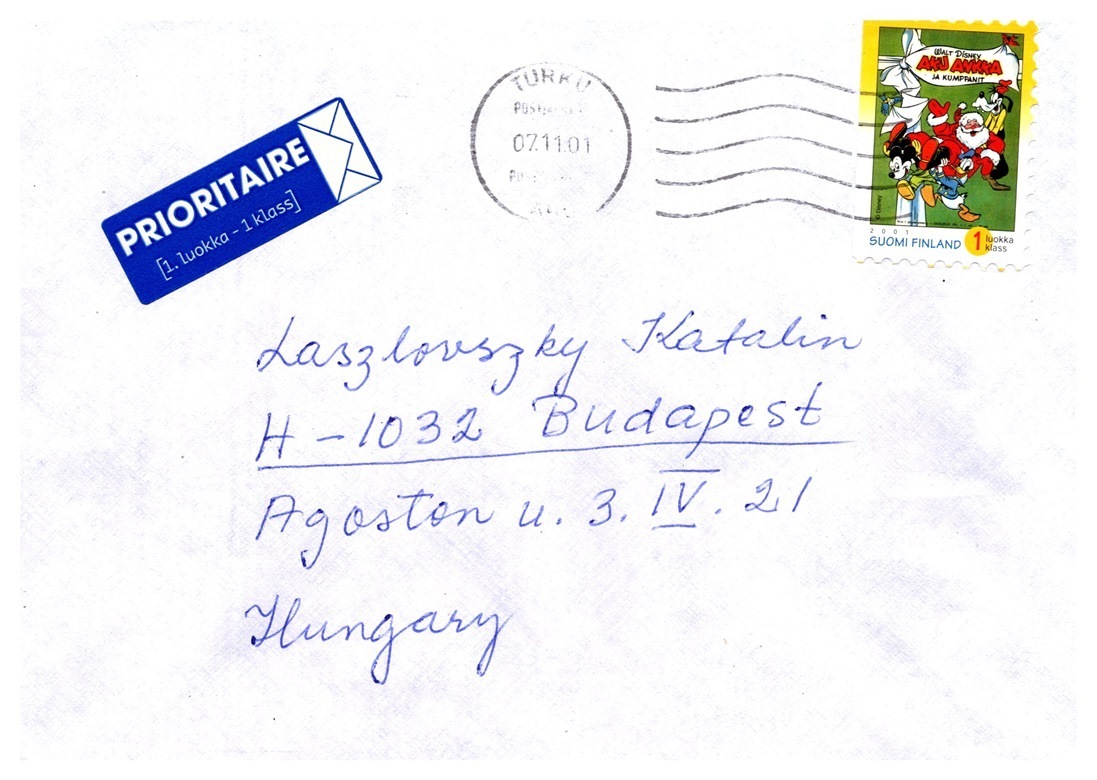 PRIORITAIRE
[1. luokka - 1 klass]
TURKU
07.11.01
WALT DISNEY
AKU ANKKA
JA KUMPPANIT
© Disney
2001
SUOMI FINLAND 1 luokka
klass
Laszlovszky Katalin
H-1032 Budapest
Agoston u. 3. IV. 21
Hungary